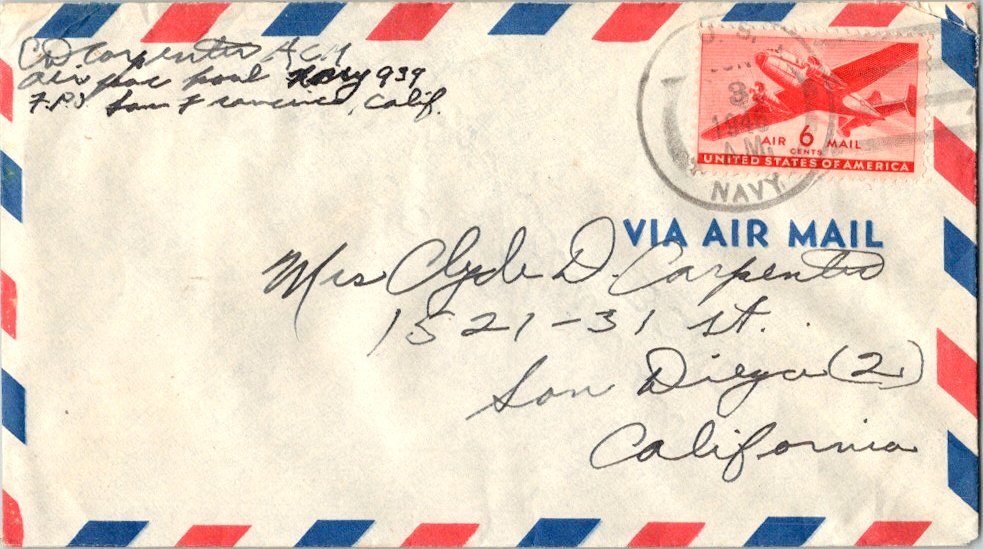 C D Carpenter A.C.M
Air pac pool Navy 939
F.P.O San Francisco, Calif.
U. S.
JUN
3
194
A.M.
NAVY
AIR 6 MAIL
CENTS
UNITED STATES OF AMERICA
VIA AIR MAIL
Mrs Clyde D. Carpenter
1521-31 st.
San Diego (2)
California